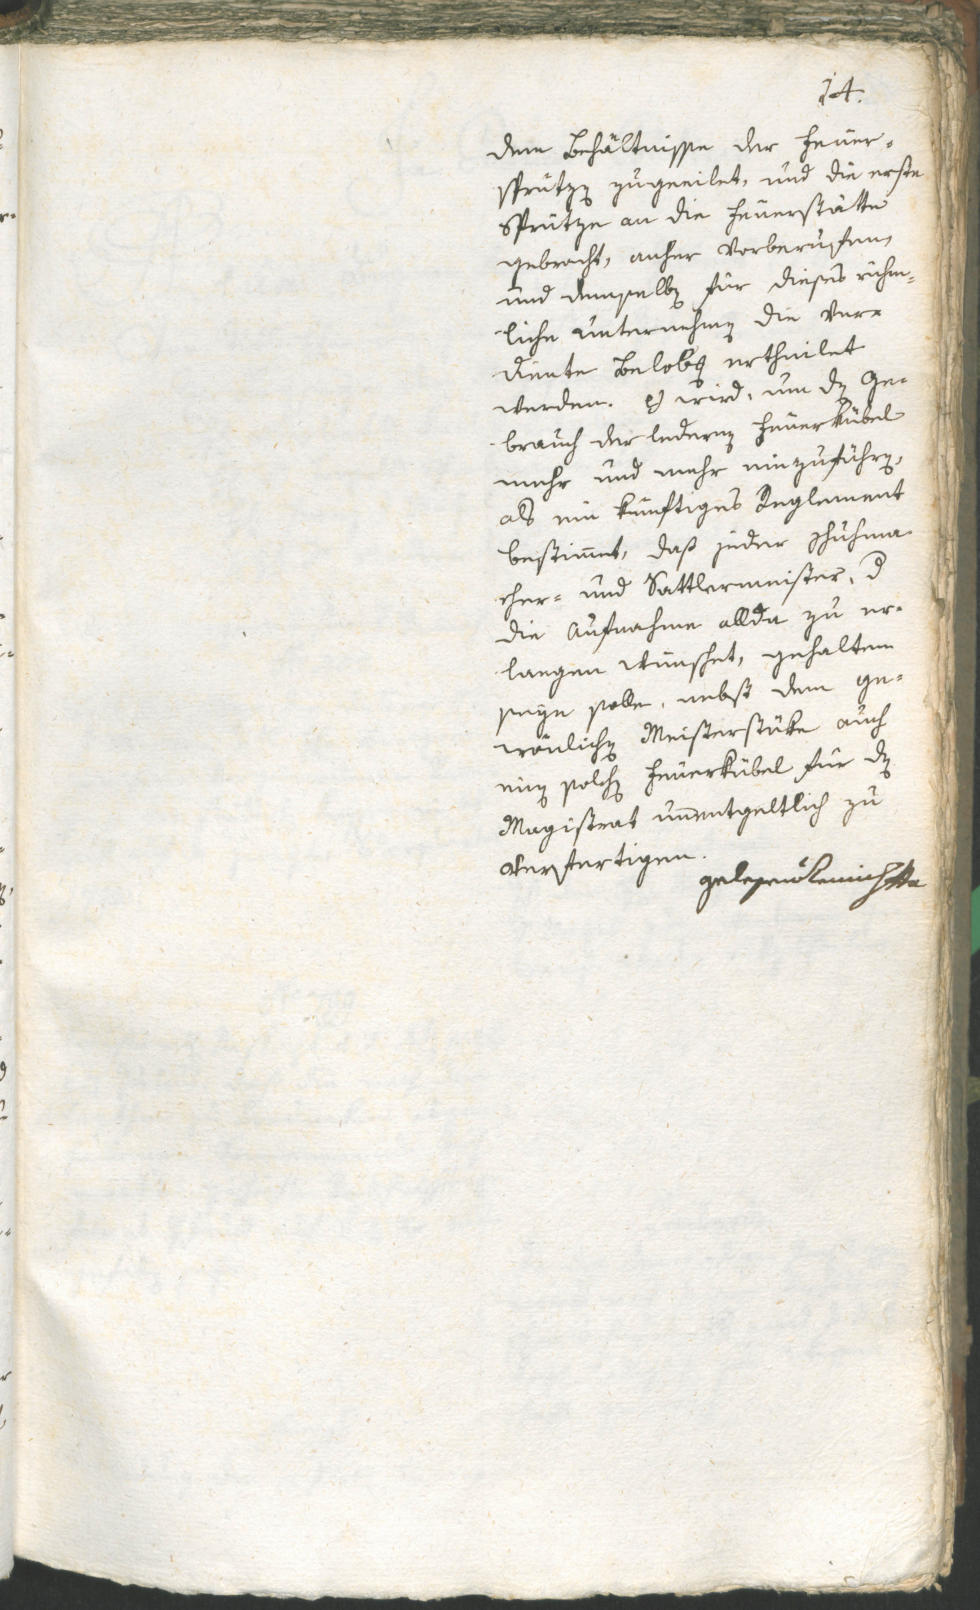 14.
dem Behältnisse der Feuer-
sprützen zugeeilet, und die erste
Sprütze an die Feuerstätte
gebracht, anher vorberufen,
und demselben für dieses rühm-
liche Unternehmen die ver-
diente Belobung ertheilet
werden. Es wird, um den Ge-
brauch der ledernen Feuerkübel
mehr und mehr einzuführen,
als ein künftiges Reglement
bestimmt, daß jeder Schuhma-
cher- und Sattlermeister, der
die Aufnahme allda zu er-
langen wünschet, gehalten
seyn solle, nebst dem ge-
wönlichen Meisterstüke auch
einen solchen Feuerkübel für den
Magistrat unentgeltlich zu
verfertigen.
gelesen